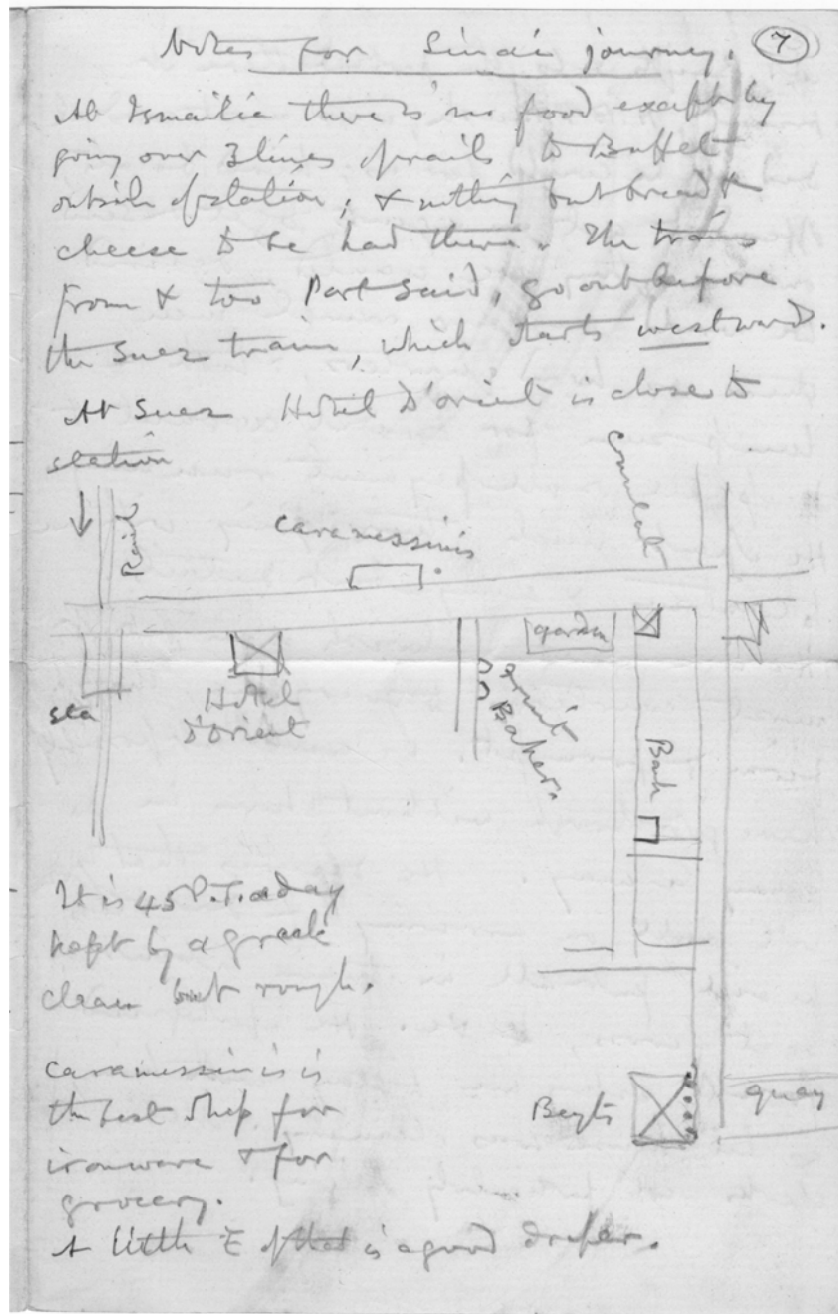 Notes for Sinai journey. 7
At Ismailia there is no food except by
going over 3 lines of rails to Buffet
outside of station, & nothing but bread &
cheese to be had there. The trains
from & too Port Said, go out before
the Suez train, which starts westward.
At Suez Hotel D'orient is close to
station
Rail
Caramessinis
Consulate
garden
sta
Hotel
D'Orient
Fruit
Baker.
Bank
It is 45 P.T. a day
kept by a greek
clean but rough.
Caramessinis is
the best shop for
ironware & for
grocery.
Beyts
quay
A little E of that is a good draper.